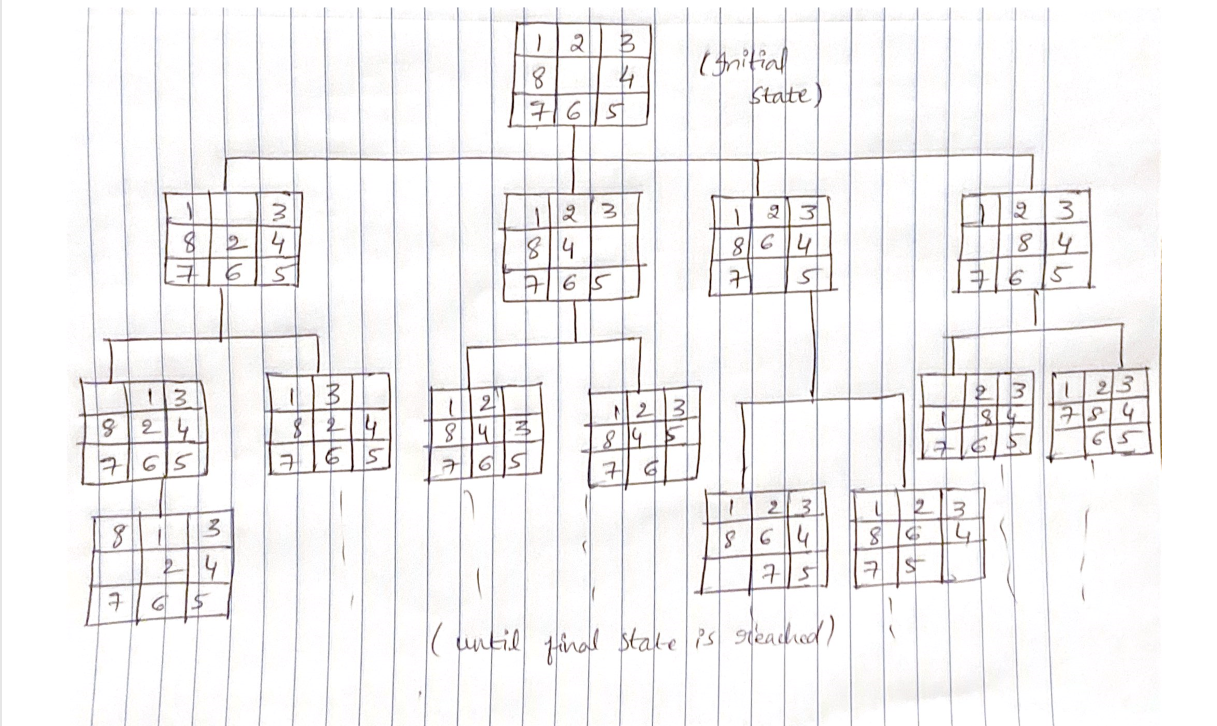 1 2 3
8 4
7 6 5
(Initial
State)
1 3
8 2 4
7 6 5
1 2 3
8 4
7 6 5
1 2 3
8 6 4
7 5
1 2 3
8 4
7 6 5
1 3
8 2 4
7 6 5
1 3
8 2 4
7 6 5
1 2
8 4 3
7 6 5
1 2 3
8 4 5
7 6
2 3
1 8 4
7 6 5
1 2 3
7 8 4
6 5
8 1 3
2 4
7 6 5
1 2 3
8 6 4
7 5
1 2 3
8 6 4
7 5
(until final state is reached)